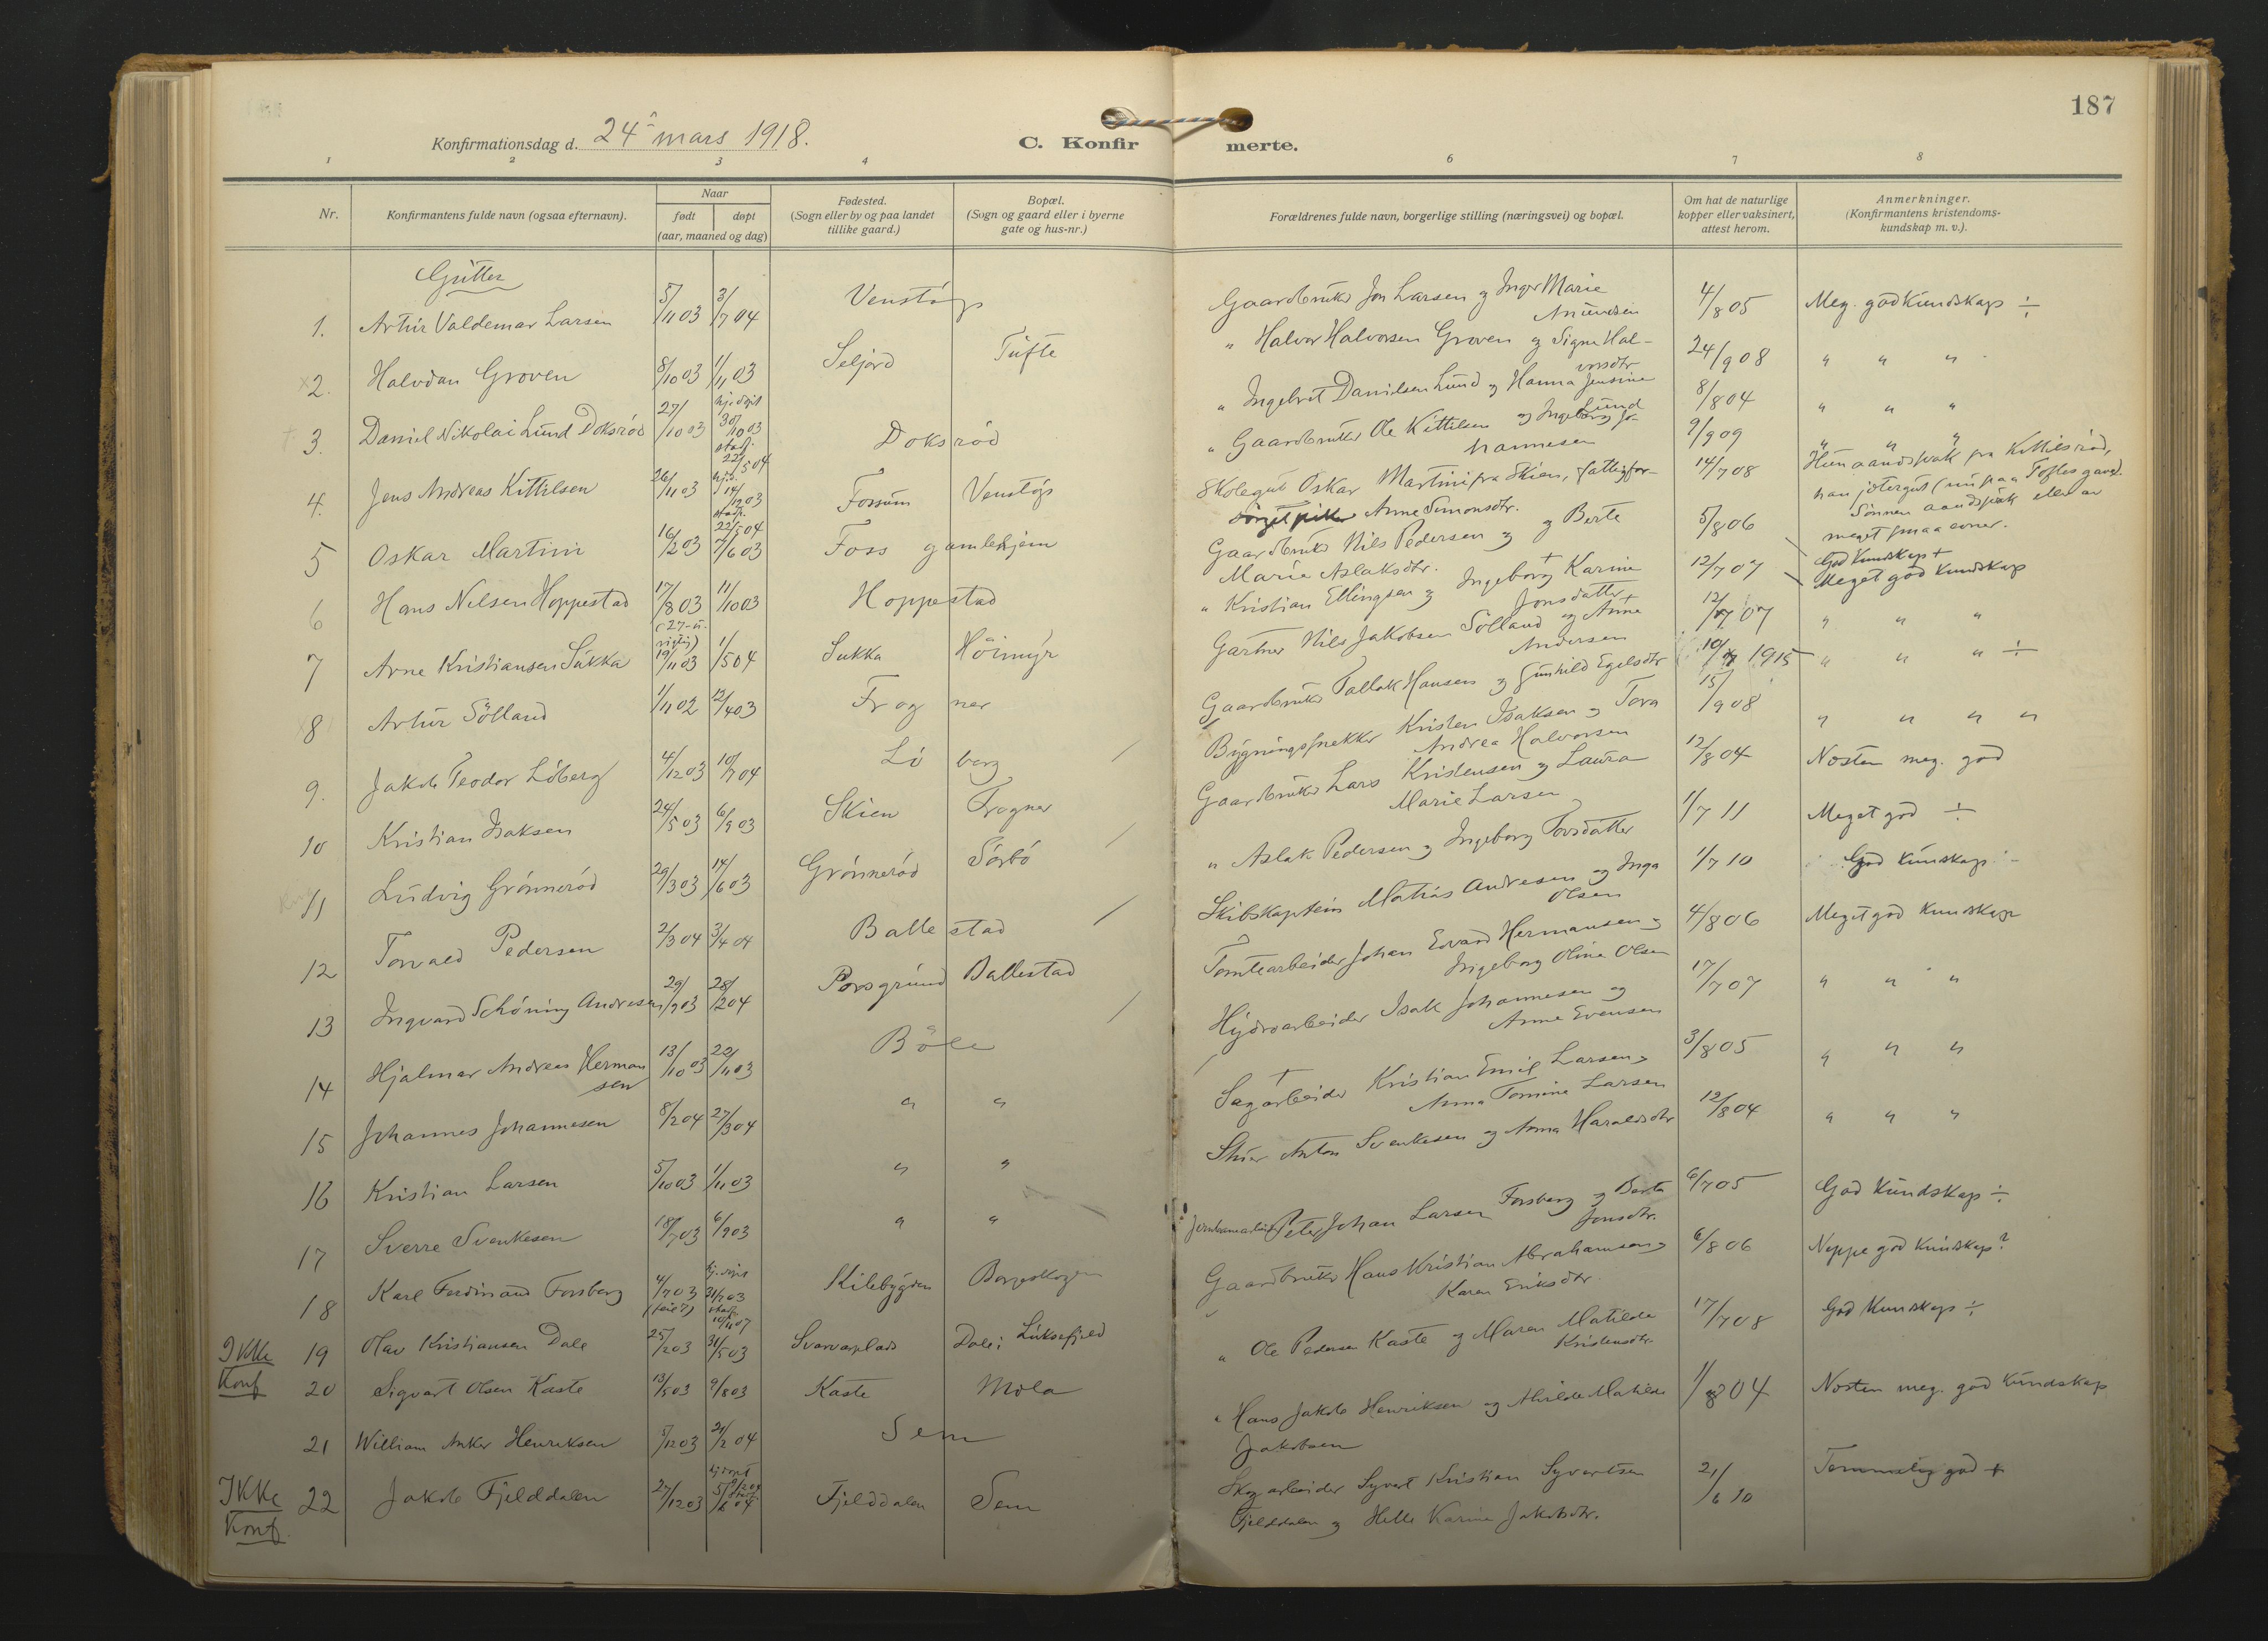 187
Konfirmationsdag d. 24 mars 1918.
C. Konfirmerte.
1 2 3 4 6 7 8
Nr.
Konfirmantens fulde navn (ogsaa efternavn).
Naar
født døpt
(aar, maaned og dag)
Fødested.
(Sogn eller by og paa landet
tillike gaard.)
Bopæl.
(Sogn og gaard eller i byerne
gate og hus-nr.)
Forældrenes fulde navn, borgerlige stilling (næringsvei) og bopæl.
Om hat de naturlige
kopper eller vaksinert,
attest herom.
Anmerkninger.
(Konfirmantens kristendoms-
kundskap m. v.).
Gutter
1. Artur Valdemar Larsen 5/11 03 3/7 04 Venstøp Gaardbruker Jon Larsen og Inger Marie Amundsen 4/8 05 Meg. god Kundskap ÷
2. Halvdan Groven 8/10 03 1/11 03 Seljord Tufte " Halvor Halvorsen Groven og Signe Halvorsdtr 24/9 08 " " "
3. Daniel Nikolai Lund Doksrød 27/10 03 hj.døpt 30/10 03 stadf. 22/5 04 Doksrød " Ingebret Danielsen Lund og Hanna Jensine Lund 8/8 04 " " "
4. Jens Andreas Kittilsen 26/11 03 hjd. 14/12 03 stadf. 22/5 04 Fossum Venstøp " Gaardbruker Ole Kittilsen og Ingeborg Johannesen 9/9 09 " " "
5 Oskar Martini 16/2 03 7/6 03 Foss gamlehjem Skolegut Oskar Martini fra Skien, fattigforsørget Anne Simonsdtr. 14/7 08 Hun aandsvak fra Kittilsrød,
han jetergut (nu paa Foftes gaard.
Sønnen aandsvak eller av
meget smaa evner.
6 Hans Nilsen Hoppestad 17/8 03 11/10 03 Hoppestad Gaardbruker Nils Pedersen og Berte Marie Aslaksdtr. 5/8 06 God Kundskap +
(27-
rigtig)
7 Arne Kristiansen Sukka 19/11 03 1/5 04 Sukka Høimyr " Kristian Ellingsen og Ingeborg Karine Jonsdatter 12/7 07 Meget god Kundskap
8 Artur Sølland 1/11 02 12/4 03 Frogner Gartner Nils Jakobsen Sølland og Anne Andersen 12/7 07 " " "
9. Jakob Teodor Løberg 4/12 03 10/7 04 Løberg Gaardbruker Tallak Hansen og Gunhild Egelsdtr 10/7 1915 " " " ÷
10 Kristian Isaksen 24/5 03 6/9 03 Skien Frogner Bygningssnekker Kristen Isaksen og Tora Andrea Halvorsen 15/9 08 " " " "
11 Ludvig Grønnerød 29/3 03 14/6 03 Grønnerød Sørbø Gaardbruker Lars Kristensen og Laura Marie Larsen 12/8 04 Nosten meg. god
12 Torvald Pedersen 2/3 04 3/4 04 Ballestad " Aslak Pedersen og Ingeborg Torsdatter 1/7 11 Meget god ÷
13 Ingvard Schøning Andresen 29/9 03 28/2 04 Porsgrund Ballestad Skibskaptein Matias Andresen og Inga Olsen 1/7 10 God Kundskap
14 Hjalmar Andreas Hermansen 13/10 03 22/11 03 Bøle Tomtearbeider Johan Edvard Hermansen og Ingeborg Oline Olsen 4/8 06 Meget god Kundskap
15 Johannes Johannesen 8/2 04 27/3 04 " " Hydroarbeider Isak Johannesen og Anne Evensen 17/7 07 " " "
16 Kristian Larsen 5/10 03 1/11 03 " " Sagarbeider Kristian Emil Larsen og Anna Tomine Larsen 3/8 05 " " "
17 Sverre Svenkesen 18/7 03 6/9 03 " " Anton Svenkesen og Anna Haraldsdtr 12/8 04 " " "
18 Karl Ferdinand Forsberg 4/7 03 hj. døpt 31/7 03 stadf. Kilebygden Borgeskogen Peter Johan Larsen Forsberg og Berta Jonsdtr. 6/7 05 God Kundskap ÷
Ikke Konf 19 Olav Kristiansen Dale 25/2 03 31/5 03 Svarvarplads Dale i Luksefjeld Gaardbruker Hans Kristian Abrahamsen og Karen Eriksdtr 6/8 06 Neppe god Kundskap?
20 Sigvart Olsen Kaste 13/5 03 9/8 03 Kaste Mola " Ole Pedersen Kaste og Maren Matilde Kristensdtr. 17/7 08 God Kundskap ÷
21 William Anker Henriksen 5/12 03 21/2 04 Sem " Hans Jakob Henriksen og Alvilde Matilde Jakobsen 1/8 04 Nosten meg. god Kundskap
Ikke Konf. 22 Jakob Fjelddalen 27/12 03 hj døpt Fjelddalen Sem Skogarbeider Syvert Kristian Syvertsen
Fjelddalen og Helle Karine Jakobsdtr. 21/6 10 Temmelig god +